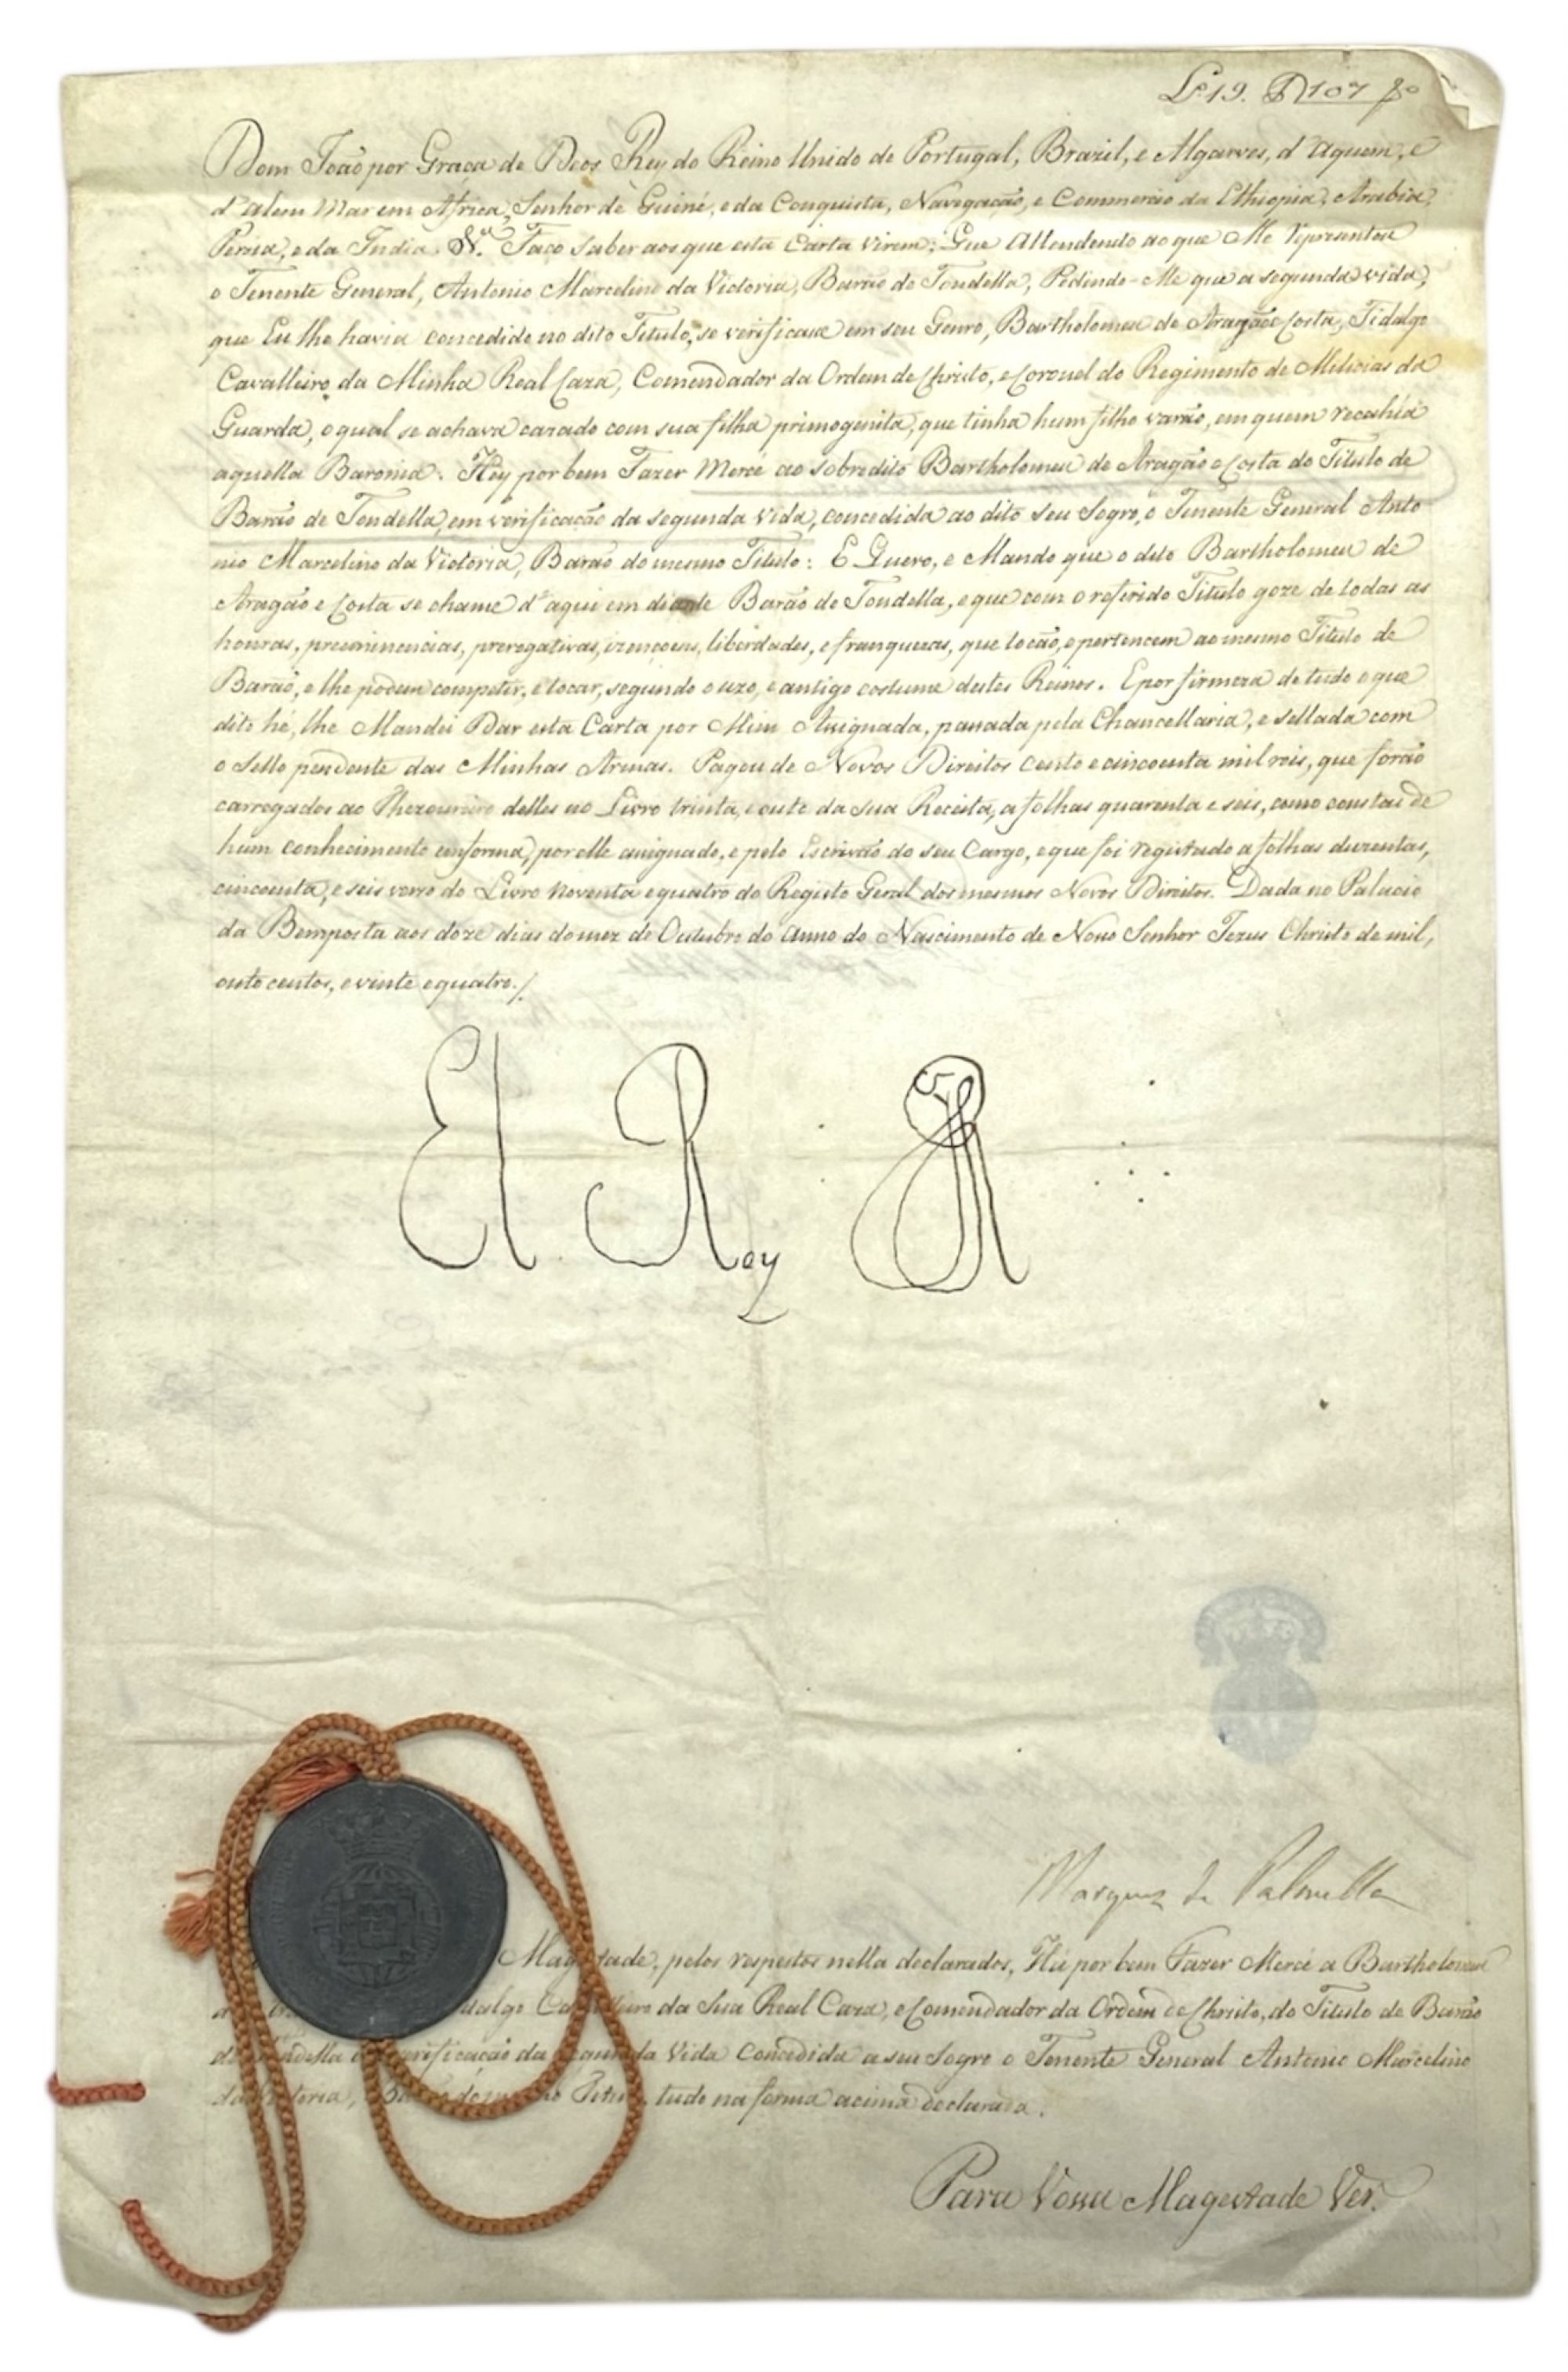 Lº 19. P 107 fº
Dom João por Graça de Deos Rey do Reino Unido de Portugal, Brazil, e Algarves, d'aquem, e
d'alem Mar em Africa, Senhor de Guiné, e da Conquista, Navegação, e Commercio da Ethiopia, Arabia,
Persia, e da India &.ª Faço saber aos que esta Carta virem: Que Attendendo ao que Me representou
o Tenente General, Antonio Marcelino da Victoria, Barão de Tondella, Pedindo-Me que a segunda vida,
que Eu lhe havia concedido no dito Titulo, se verificasse em seu Genro, Bartholomeu de Aragão e Costa, Fidalgo
Cavalleiro da Minha Real Caza, Comendador da Ordem de Christo, e Coronel do Regimento de Milicias da
Guarda, o qual se achava cazado com sua filha primogenita, que tinha hum filho varão, em quem recahia
aquella Baronia. Hey por bem Fazer Mercê ao sobredito Bartholomeu de Aragão e Costa do Titulo de
Barão de Tondella, em verificação da segunda vida, concedida ao dito seu Sogro, o Tenente General Anto
nio Marcelino da Victoria, Barão do mesmo Titulo: E Quero, e Mando que o dito Bartholomeu de
Aragão e Costa se chame d'aqui em diante Barão de Tondella, e que com o referido Titulo goze de todas as
honras, preeminencias, prerogativas, izençoens, liberdades, e franquezas, que tocão, e pertencem ao mesmo Titulo de
Barão, e lhe podem competir, e tocar, segundo o uzo, e antigo costume destes Reinos. E por firmeza de tudo o que
dito hé, lhe Mandei Dar esta Carta por Mim Assignada, passada pela Chancellaria, e sellada com
o Sello pendente das Minhas Armas. Pagou de Novos Direitos cento e cincoenta mil reis, que forão
carregados ao Thezoureiro delles no Livro trinta, e outo da sua Receita, a folhas quarenta e seis, como constou de
hum conhecimento em forma, por elle assignado, e pelo Escrivão do seu Cargo, e que foi registado a folhas duzentas,
cincoenta, e seis verso do Livro noventa e quatro do Registo Geral dos mesmos Novos Direitos. Dada no Palacio
da Bemposta aos doze dias do mez de Outubro do anno do Nascimento de Nosso Senhor Jezus Christo de mil,
outo centos, e vinte e quatro./.
El Rey
Marquez de Palmella
Magestade, pelos respeitos nella declarados, Há por bem Fazer Mercê a Bartholomeu
Fidalgo Cavalleiro da Sua Real Caza, e Comendador da Ordem de Christo, do Titulo de Barão
de Tondella em verificação da segunda Vida concedida a seu Sogro o Tenente General Antonio Marcelino
da Victoria, Barão do mesmo Titulo, tudo na forma acima declarada.
Para Vossa Magestade Ver.